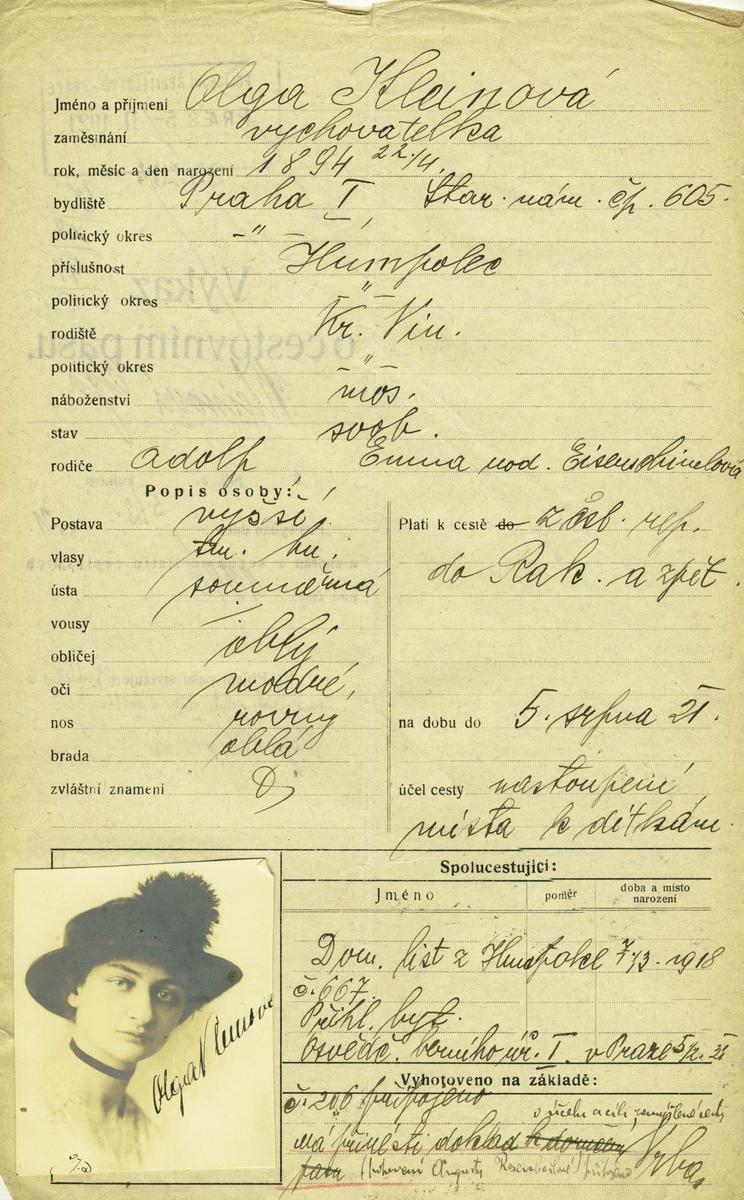 Jméno a příjmení Olga Kleinová
zaměstnání vychovatelka
rok, měsíc a den narození 1894 22/4.
bydliště Praha I, Star. nám. čp. 605.
politický okres -"-
příslušnost Humpolec
politický okres -"-
rodiště Kr. Vin.
politický okres -"-
náboženství mos.
stav svob.
rodiče Adolf Emma rod. Eisenschimelová
Popis osoby:
Postava vyšší
vlasy tm. hn.
ústa souměrná
vousy /
obličej oblý
oči modré,
nos rovný
brada oblá
zvláštní znamení
Platí k cestě do z čsl. rep.
do Rak. a zpět.
na dobu do 5. srpna 21.
účel cesty nastoupení
místa k dítkám.
Olga Kleinová
Spolucestující:
Jméno poměr doba a místo
narození
Dom. list z Humpolce 7/3. 1918
č. 667.
Přihl. byt.
Osvědč. berního úř. I. v Praze 5/2. 21
Vyhotoveno na základě:
č. 206 připojeno
má přinésti doklad
Výkaz
o cestovním pasu.